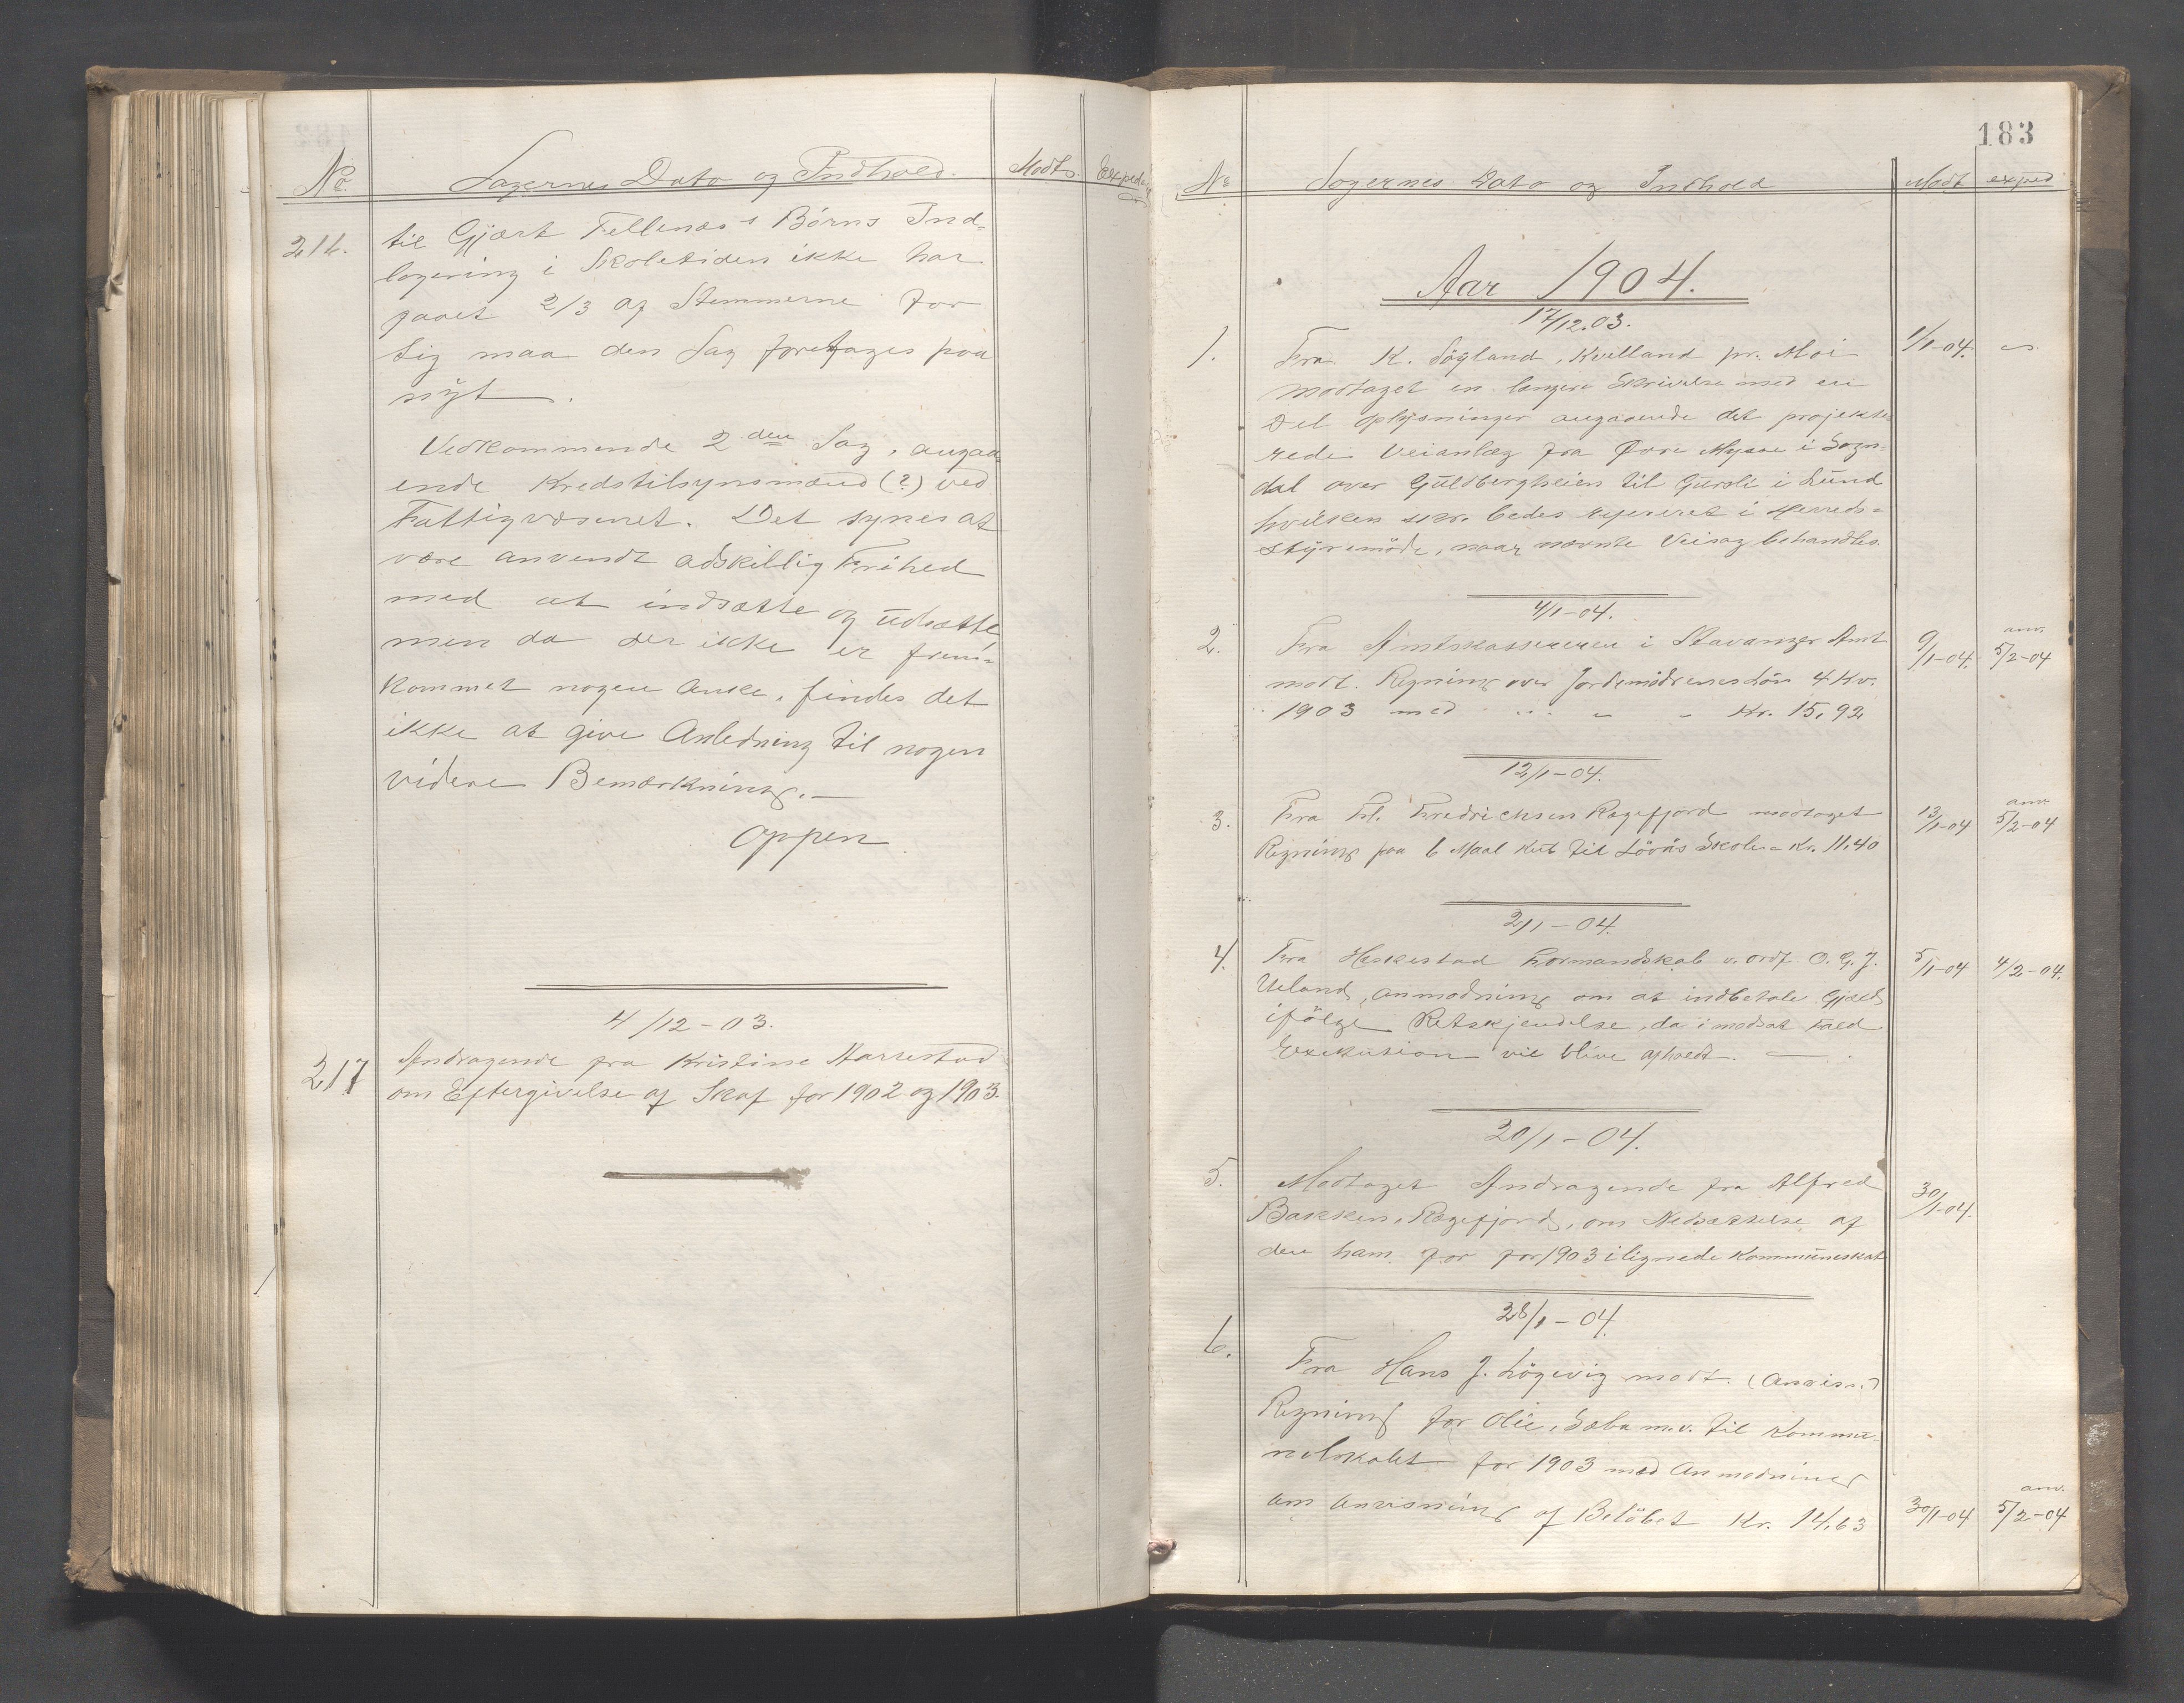 No. Sagernes Dato og Indhold. Modt. Exped.
216. til Gjært Fellenæs's Børns Ind-
logering i Skoletiden ikke har
faaet 2/3 af Stemmerne for
sig maa den Sag foretages paa
nyt.
Vedkommende 2den Sag, angaa-
ende Kredstilsynsmænd (?) ved
Fattigvæsenet. Det synes at
være anvendt adskillig Frihed
med at indsætte og udsætte
men da der ikke er frem-
kommet nogen Anke, findes det
ikke at give Anledning til nogen
videre Bemærkning.—
Oppen
4/12-03.
217 Andragende fra Kristine Aarrestad
om Eftergivelse af Skat for 1902 og 1903.
183
No Sagernes Dato og Indhold Modt exped
Aar 1904.
17/12.03.
1. Fra K. Søyland, Kvelland pr. Moi 1/1-04.
modtaget en længere Skrivelse med en
Del Oplysninger angaaende det projekte-
rede Veianlæg fra Øvre Mysse i Sogn-
dal over Guldbergheien til Gursli i Lund
hvilken skr. bedes refereret i Herreds-
styremøde, naar nævnte Veisag behandles.
4/1-04.
2. Fra Amtskassereren i Stavanger Amt 9/1-04. anv. 5/2-04
modt. Regning over Jordemødrenes Løn 4 Kv.
1903 med " " " Kr. 15,92
12/1-04.
3. Fra Fr. Fredriksen Rægefjord modtaget 13/1-04 anv 5/2-04
Regning paa 6 Maal Kul til Løvaas Skole = Kr. 11.40
2/1-04.
4. Fra Heskestad Formandskab v. ordf. O. G. J. 5/1-04 4/2-04.
Ueland, Anmodning om at indbetale Gjæld
ifølge Retskjendelse, da i modsat Fald
Exekution vil blive afholdt. —
20/1-04.
5. Modtaget Andragende fra Alfred 30/1-04.
Bakken, Rægefjord, om Nedsættelse af
den ham for for 1903 ilignede Kommuneskat
28/1-04.
6. Fra Hans J. Løgevig modt. (Anvisn.)
Regning for Olie, Sæbe m.v. til Kommu-
nelokalet for 1903 med Anmodning
om Anvisning af Beløbet Kr. 14,63 30/1-04 anv. 5/2-04